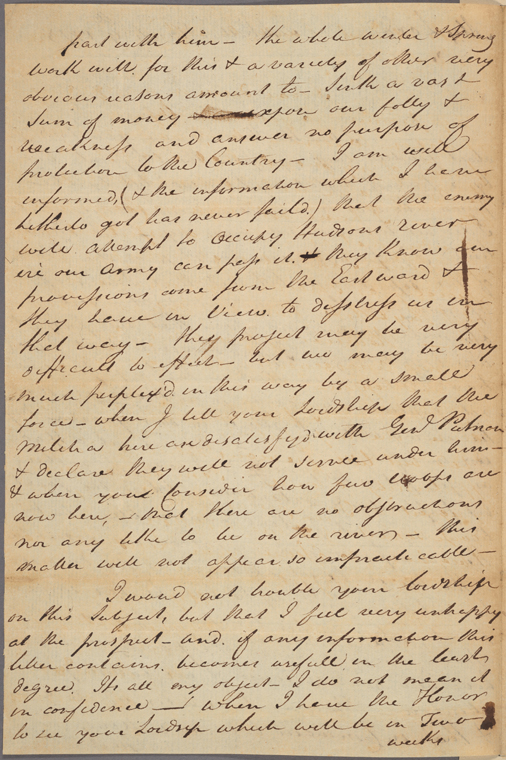 part with him – the whole winter & Spring
work will, for this & a variety of other very
obvious reasons amount to – Sink a vast
Sum of money upon our folly &
weakness and answer no purpose of
protection to the Country – I am well
informed, (& the information which I have
hitherto got has never faild,) that the enemy
will attempt to occupy Hudsons river
ere our Army can pass it. they know our
provissions come from the Eastward &
they have in View to disstress us in
that way – they project may be very
difficult to effect – but we may be very
much perplex'd in this way by a small
force – when I tell your Lordship that the
Militia here are disatisfy'd with Genl. Putnam
& declare they will not serve under him –
& when you Consider how few troops are
now here, – that there are no obstructions
nor any like to be on the river – this
matter will not appear so impracticable –
I would not trouble your lordship
on this Subject, but that I feel very unhappy
at the prospect – and if any information this
letter contains, becomes usefull in the least
degree. Its all my object – I do not mean it
in confidence – when I have the Honor
to see your Lordsp which will be in Two
weeks